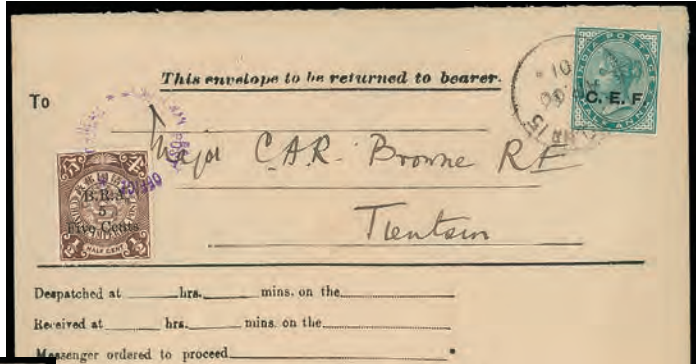 This envelope to be returned to bearer.
To
Major C.A.R. Browne RE
Tientsin
INDIA POSTAGE
C. E. F
HALF ANNA
B.R.A.
5
Five Cents
HALF CENT
OFFICE
Despatched at hrs. mins. on the
Received at hrs. mins. on the
Messenger ordered to proceed